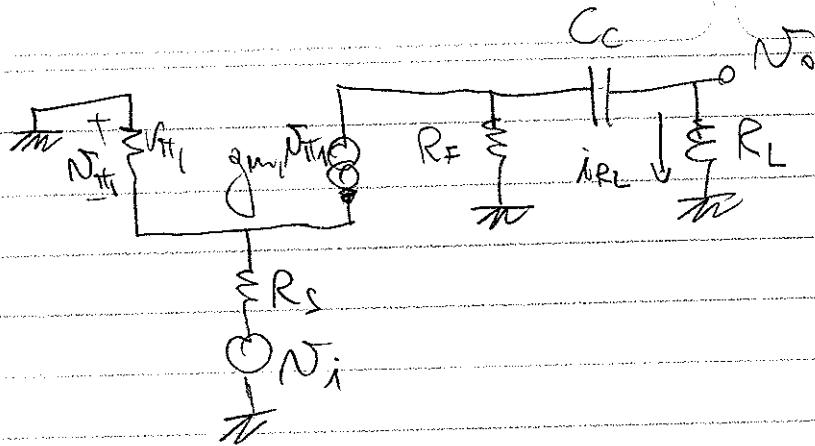 C_C
v_o
+
v_π1
-
r_π1
g_m1 v_π1
R_F
i_RL
R_L
R_S
v_i